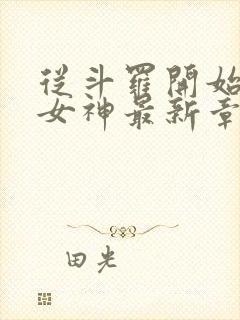 從斗羅開始
女神最新章
田光